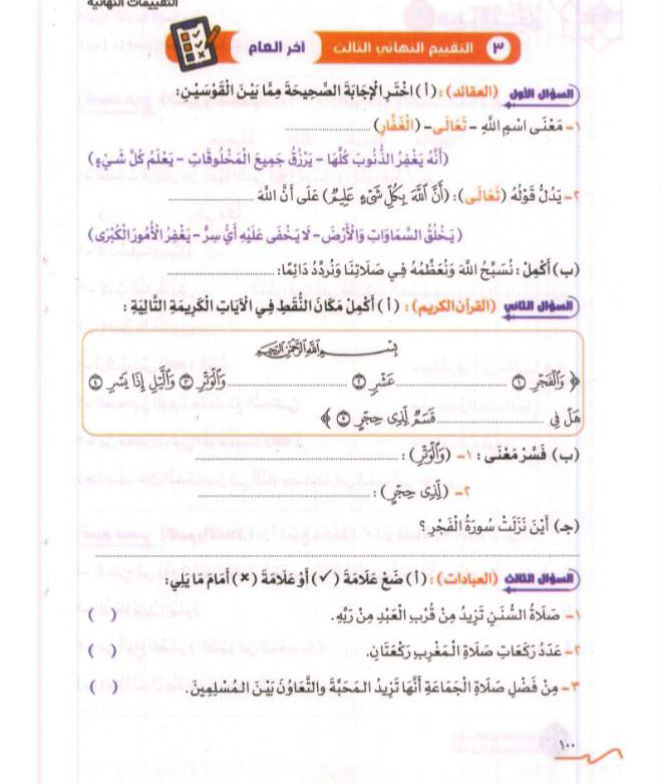 التقييمات النهائية
٣ التقييم النهائي الثالث آخر العام
السؤال الأول (العقائد): (أ) اخْتَرِ الْإِجَابَةَ الصَّحِيحَةَ مِمَّا بَيْنَ الْقَوْسَيْنِ:
١- مَعْنَى اسْمِ اللَّهِ - تَعَالَى - (الْغَفَّارِ) ..............
(أَنَّهُ يَغْفِرُ الذُّنُوبَ كُلَّهَا - يَرْزُقُ جَمِيعَ الْمَخْلُوقَاتِ - يَعْلَمُ كُلَّ شَيْءٍ)
٢- يَدُلُّ قَوْلُهُ (تَعَالَى): (أَنَّ ٱللَّهَ بِكُلِّ شَىْءٍ عَلِيمٌ) عَلَى أَنَّ اللَّهَ ..............
(يَخْلُقُ السَّمَاوَاتِ وَالْأَرْضَ - لَا يَخْفَى عَلَيْهِ أَيُّ سِرٍّ - يَغْفِرُ الْأُمُورَ الْكُبْرَى)
(ب) أَكْمِلْ: نُسَبِّحُ اللَّهَ وَنُعَظِّمُهُ فِي صَلَاتِنَا وَنُرَدِّدُ دَائِمًا: ..............
السؤال الثاني (القرآن الكريم): (أ) أَكْمِلْ مَكَانَ النُّقَطِ فِي الْآيَاتِ الْكَرِيمَةِ التَّالِيَةِ:
بِسْمِ اللَّهِ الرَّحْمَٰنِ الرَّحِيمِ
﴿ وَٱلْفَجْرِ ١ .............. عَشْرٍ ٢ .............. وَٱلْوَتْرِ ٣ وَٱلَّيْلِ إِذَا يَسْرِ ٤
هَلْ فِى .............. قَسَمٌ لِّذِى حِجْرٍ ٥ ﴾
(ب) فَسِّرْ مَعْنَى: ١- (وَٱلْوَتْرِ): ..............
٢- (لِّذِى حِجْرٍ): ..............
(جـ) أَيْنَ نَزَلَتْ سُورَةُ الْفَجْرِ؟
السؤال الثالث (العبادات): (أ) ضَعْ عَلَامَةَ (✓) أَوْ عَلَامَةَ (×) أَمَامَ مَا يَلِي:
١- صَلَاةُ السُّنَنِ تَزِيدُ مِنْ قُرْبِ الْعَبْدِ مِنْ رَبِّهِ. ( )
٢- عَدَدُ رَكَعَاتِ صَلَاةِ الْمَغْرِبِ رَكْعَتَانِ. ( )
٣- مِنْ فَضْلِ صَلَاةِ الْجَمَاعَةِ أَنَّهَا تَزِيدُ الْمَحَبَّةَ والتَّعَاوُنَ بَيْنَ الْمُسْلِمِينَ. ( )
١٠٠